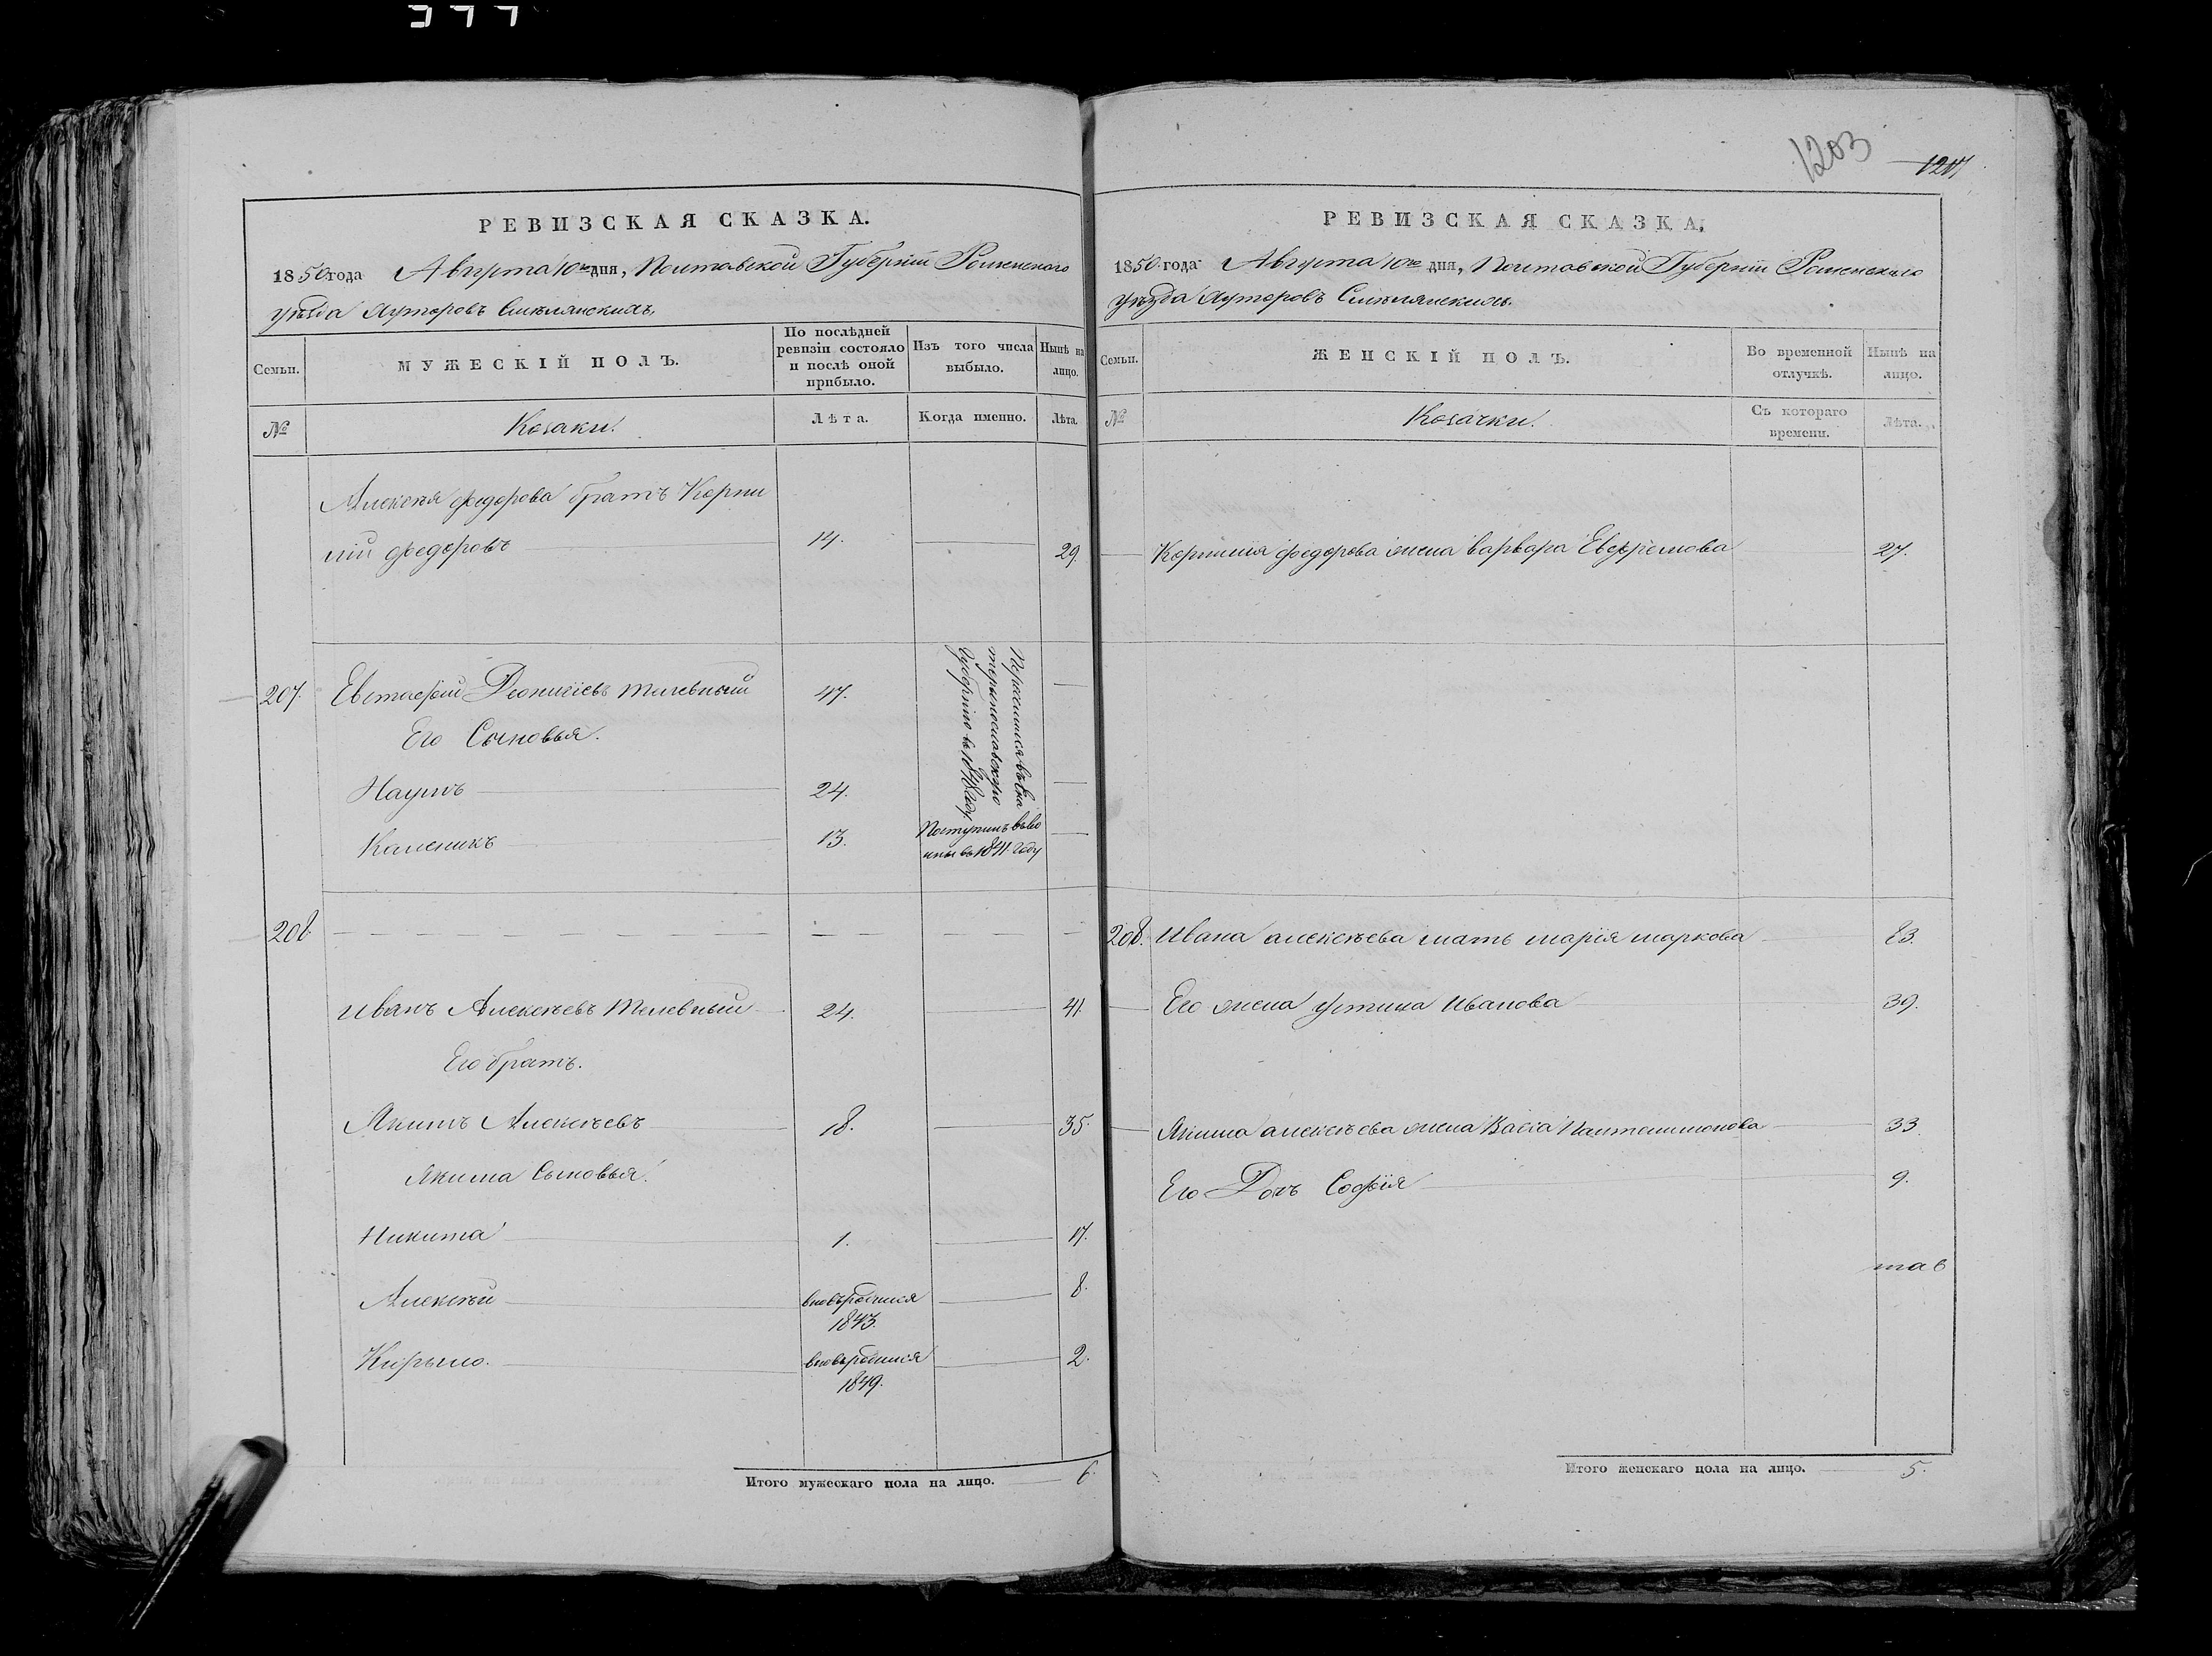 377
1203
РЕВИЗСКАЯ СКАЗКА.
1850 года Августа 10го дня, Полтавской Губерніи Роменскаго
уѣзда Хуторовъ Смѣлянскихъ.
Семьи.
МУЖЕСКІЙ ПОЛЪ.
По послѣдней ревизіи состояло и послѣ оной прибыло.
Изъ того числа выбыло.
Нынѣ на лицо.
№
Козаки.
Лѣта.
Когда именно.
Лѣта.
Алексѣя Федорова братъ Корни
лій Федоровъ 14. 29.
207. Евстафій Леонтіевъ 47.
Переселился въ Ека
теринославскую
Губернію въ 1848 году
Его Сыновья.
Наумъ 24.
Каленикъ 13. Поступилъ въ во
ины въ 1841 году
208.
Иванъ Алексѣевъ Телевный 24. 41.
Его братъ.
Якимъ Алексѣевъ 18. 35.
Якима Сыновья.
Никита 1. 17.
Алексѣй вновьродился 8.
1843.
Кирыло. вновьродился 2.
1849.
Итого мужескаго пола на лицо. 6.
РЕВИЗСКАЯ СКАЗКА.
1850 года Августа 10го дня, Полтавской Губерніи Роменскаго
уѣзда Хуторовъ Смѣлянскихъ.
Семьи.
ЖЕНСКІЙ ПОЛЪ.
Во временной отлучкѣ.
Нынѣ на лицо.
№
Козачки.
Съ котораго времени.
Лѣта.
Корнилія Федорова жена Варвара Евфремова 27.
208. Ивана Алексѣева мать Марія Маркова 83.
Его жена Устина Иванова 39.
Якима Алексѣева жена Васса Пантелимонова 33.
Его Дочь Софія 9.
Итого женскаго пола на лицо. 5.